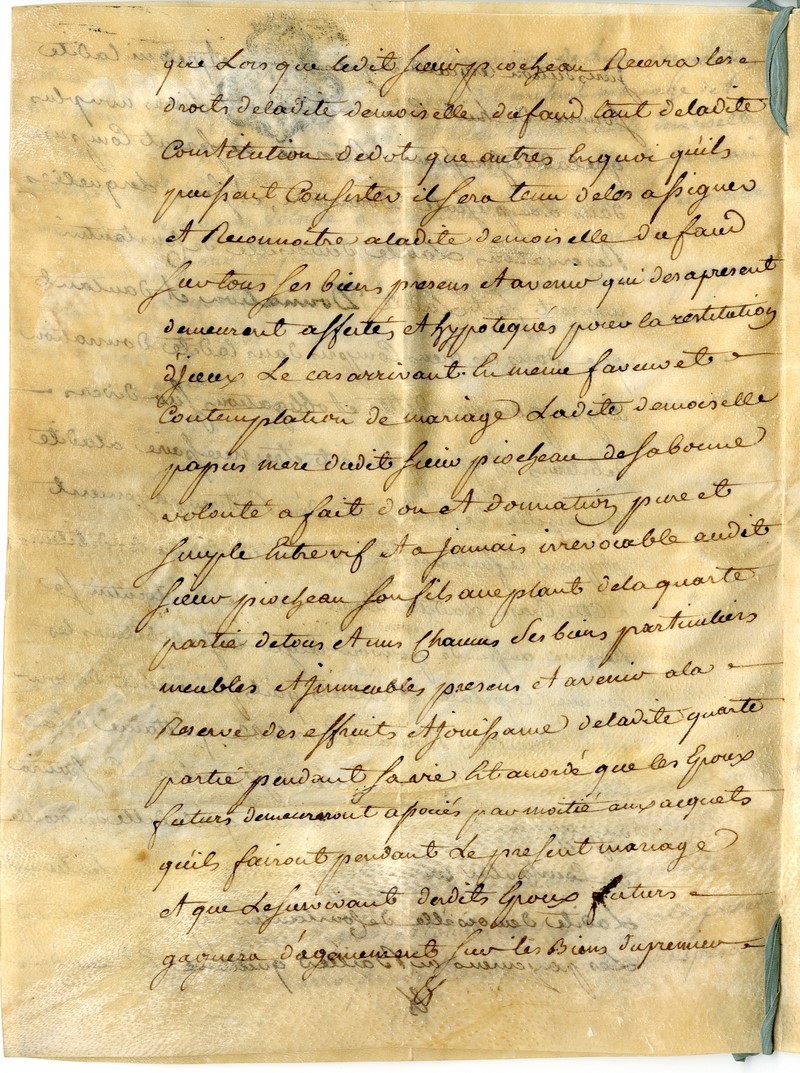 que Lors que ledit sieur piocheau Recevra les
droits deladite demoiselle dufaud tant deladite
Constitution dedot que autres Enquoi quils
puissent Consister il sera tenu deles assigner
et Reconnoitre aladite demoiselle dufaud
sur tous ses biens presens et avenir qui des apresent
demeurent affectés et hypotequés pour la restitution
d'jceux Le cas arrivant. En meme faveur et
Contemplation de mariage Ladite demoiselle
papus mere dudit sieur piocheau de sa bonne
volonté a fait don et donnation pure et
simple Entre vif et a jamais irrevocable audit
sieur piocheau son fils acceptant de la quarte
partie de tous et uns Chacuns ses biens particuliers
meubles et jmmeubles presens et avenir ala
Reserve des effruits et jouissance deladite quarte
partie pendant sa vie Est accordé que les Epoux
futurs demeureront associés par moitié aux acquets
quils fairont pendant Le present mariage
et que Le survivant desdits Epoux futurs
gagnera d'agencement sur les Biens du premier